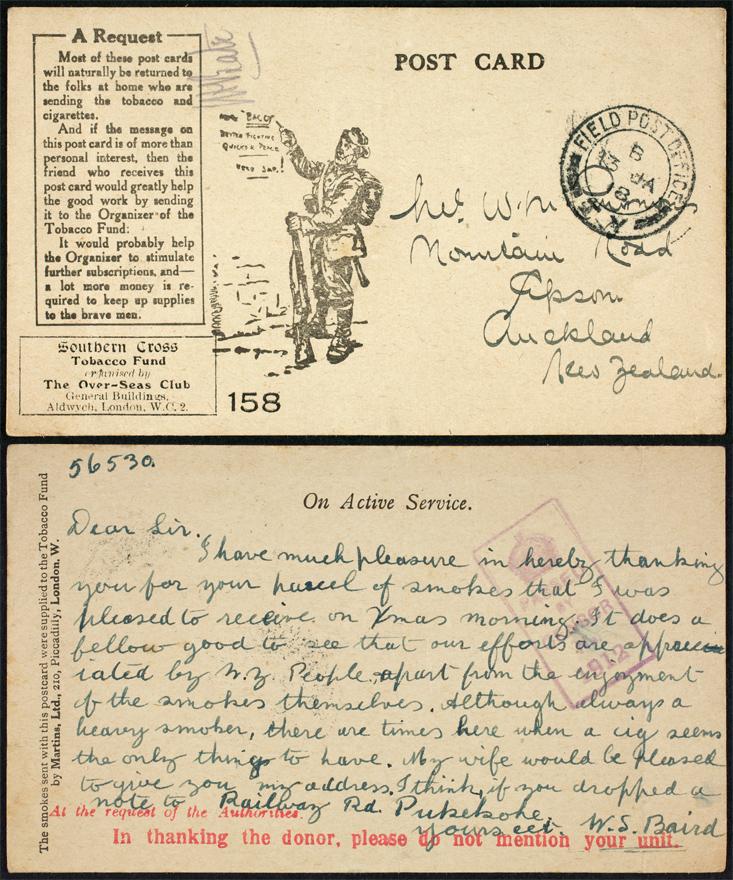 A Request
Most of these post cards
will naturally be returned to
the folks at home who are
sending the tobacco and
cigarettes.
And if the message on
this post card is of more than
personal interest, then the
friend who receives this
post card would greatly help
the good work by sending
it to the Organizer of the
Tobacco Fund:
It would probably help
the Organizer to stimulate
further subscriptions, and—
a lot more money is re-
quired to keep up supplies
to the brave men.
Southern Cross
Tobacco Fund
organised by
The Over-Seas Club
General Buildings,
Aldwych, London, W.C. 2.
BACCY
BETTER FIGHTING
QUICKER PEACE
158
POST CARD
FIELD POST OFFICE
B
JA
18
Mountain Road
Epsom
Auckland
New Zealand.
56530.
On Active Service.
Dear Sir.
I have much pleasure in hereby thanking
you for your parcel of smokes that I was
pleased to receive on Xmas morning. It does a
fellow good to see that our efforts are apprec
iated by N.Z. People, apart from the enjoyment
of the smokes themselves. Although always a
heavy smoker, there are times here when a cig seems
the only things to have. My wife would be pleased
to give you my address. I think, if you dropped a
note to Railway Rd. Pukekohe.
yours ect. W.S. Baird
At the request of the Authorities.
In thanking the donor, please do not mention your unit.
PASSED
BY
CENSOR
The smokes sent with this postcard were supplied to the Tobacco Fund
by Martins, Ltd., 210, Piccadilly, London, W.